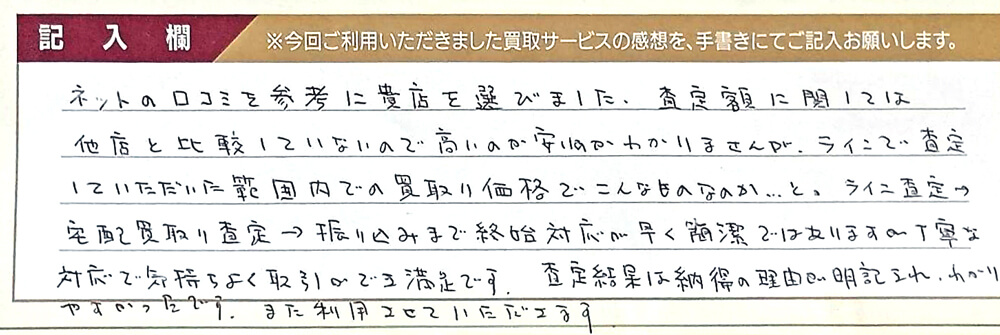 記入欄
※今回ご利用いただきました買取サービスの感想を、手書きにてご記入お願いします。
ネットの口コミを参考に貴店を選びました. 査定額に関しては
他店と比較していないので高いのか安いのかわかりませんが、ラインで査定
していただいた範囲内での買取り価格でこんなものなのか…と。ライン査定→
宅配買取り査定→振り込みまで終始対応が早く簡潔ではありますが丁寧な
対応で気持ちよく取引ができ満足です. 査定結果は納得の理由が明記され、わかり
やすかったです. また利用させていただきます